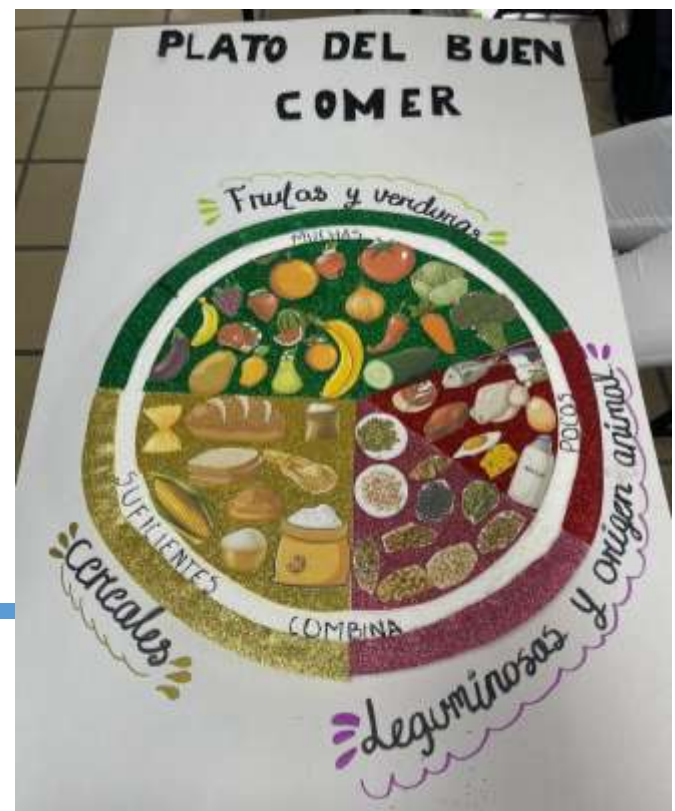 PLATO DEL BUEN
COMER
Frutas y verduras
MUCHAS
POCOS
SUFICIENTES
COMBINA
Cereales
Leguminosas y origen animal